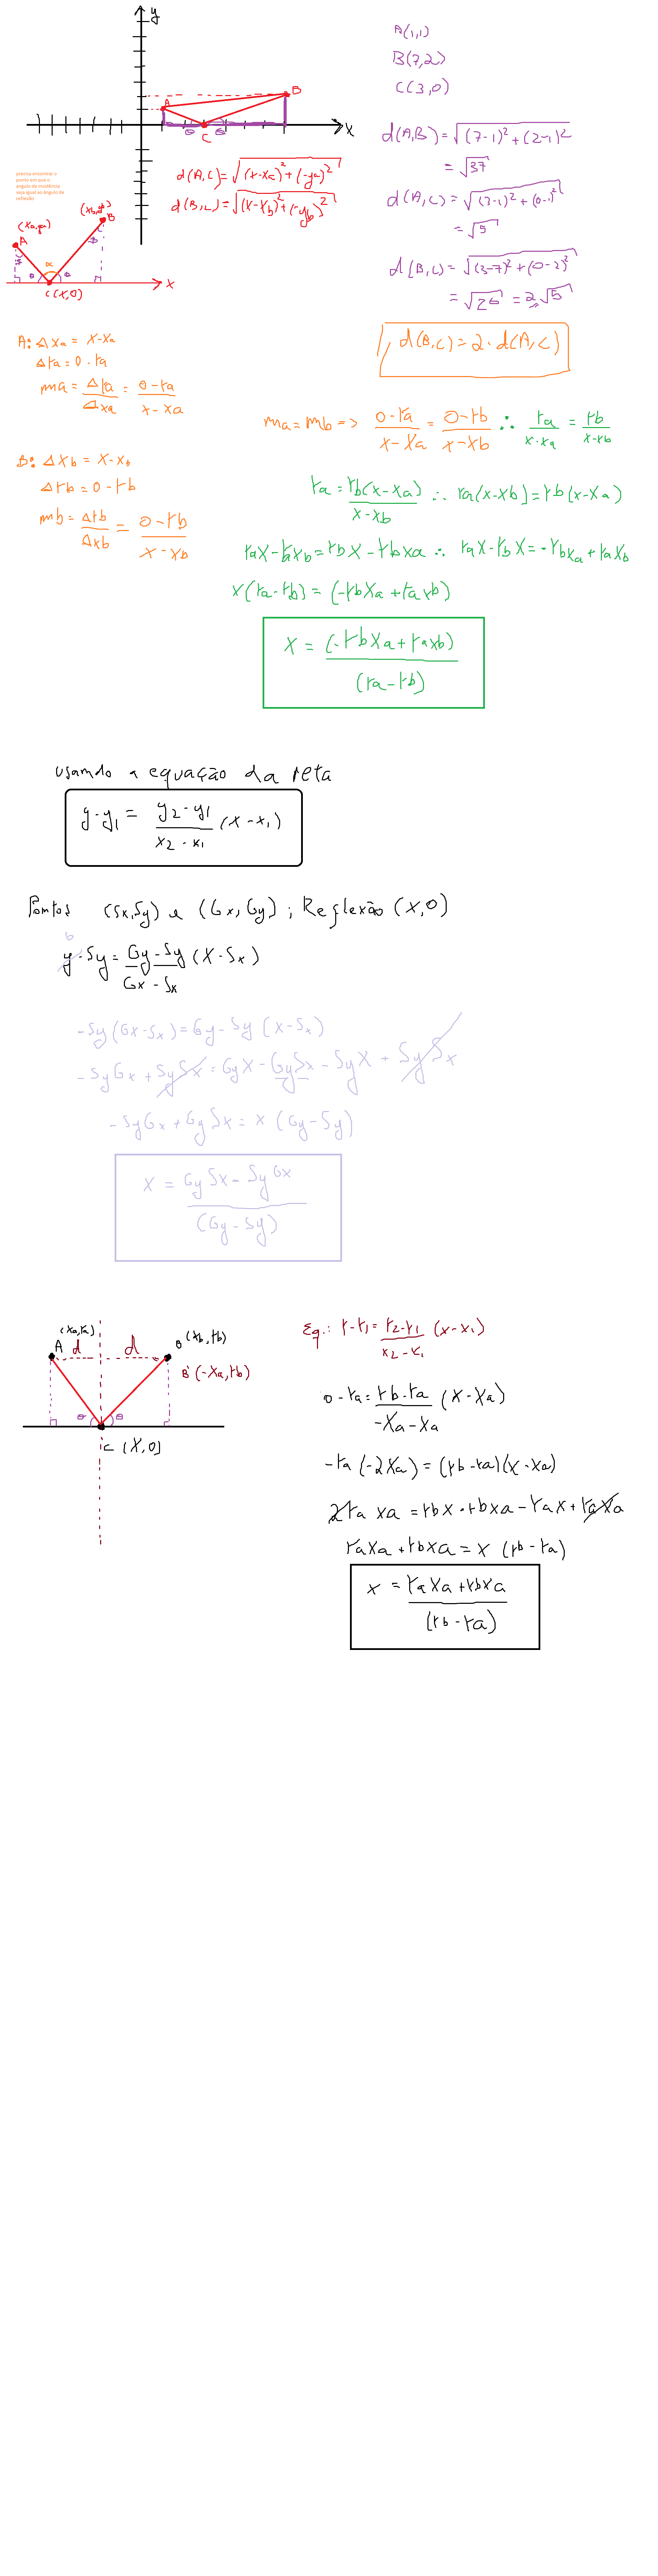 y
A
B
C
X
θ θ
A(1,1)
B(7,2)
C(3,0)
d(A,B) = √(7-1)² + (2-1)²
= √37
d(A,C) = √(3-1)² + (0-1)²
= √5
d(B,C) = √(3-7)² + (0-2)²
= √20 = 2√5
d(B,C) = 2 · d(A,C)
d(A,C) = √(x-xa)² + (-ya)²
d(B,C) = √(x-xb)² + (-yb)²
precisa encontrar o
ponto em que o
ângulo de incidência
seja igual ao ângulo de
reflexão
(xa,ya)
A
(xb,yb)
B
α
θ θ
C(x,0)
x
A: Δxa = x-xa
Δya = 0-ya
ma = Δya/Δxa = (0-ya)/(x-xa)
B: Δxb = x-xb
Δyb = 0-yb
mb = Δyb/Δxb = (0-yb)/(x-xb)
ma = mb => (0-ya)/(x-xa) = (0-yb)/(x-xb) ∴ ya/(x-xa) = yb/(x-xb)
ya = yb(x-xa)/(x-xb) ∴ ya(x-xb) = yb(x-xa)
yax - yaxb = ybx - ybxa ∴ yax - ybx = -ybxa + yaxb
x(ya-yb) = (-ybxa + yaxb)
x = (-ybxa + yaxb)/(ya-yb)
usando a equação da reta
y-y1 = (y2-y1)/(x2-x1) (x-x1)
Pontos (Sx,Sy) e (Gx,Gy); Reflexão (X,0)
0
y-Sy = (Gy-Sy)/(Gx-Sx) (X-Sx)
-Sy(Gx-Sx) = Gy-Sy(x-Sx)
-SyGx + SySx = GyX - GySx - SyX + SySx
-SyGx + GySx = x(Gy-Sy)
x = (GySx - SyGx)/(Gy-Sy)
(xa,ya)
A d d B (xb,yb)
B'(-xa,yb)
θ θ
C(x,0)
Eq.: y-y1 = (y2-y1)/(x2-x1) (x-x1)
0-ya = (yb-ya)/(-xa-xa) (x-xa)
-ya(-2xa) = (yb-ya)(x-xa)
2yaxa = ybx - ybxa - yax + yaxa
yaxa + ybxa = x(yb-ya)
x = (yaxa + ybxa)/(yb-ya)